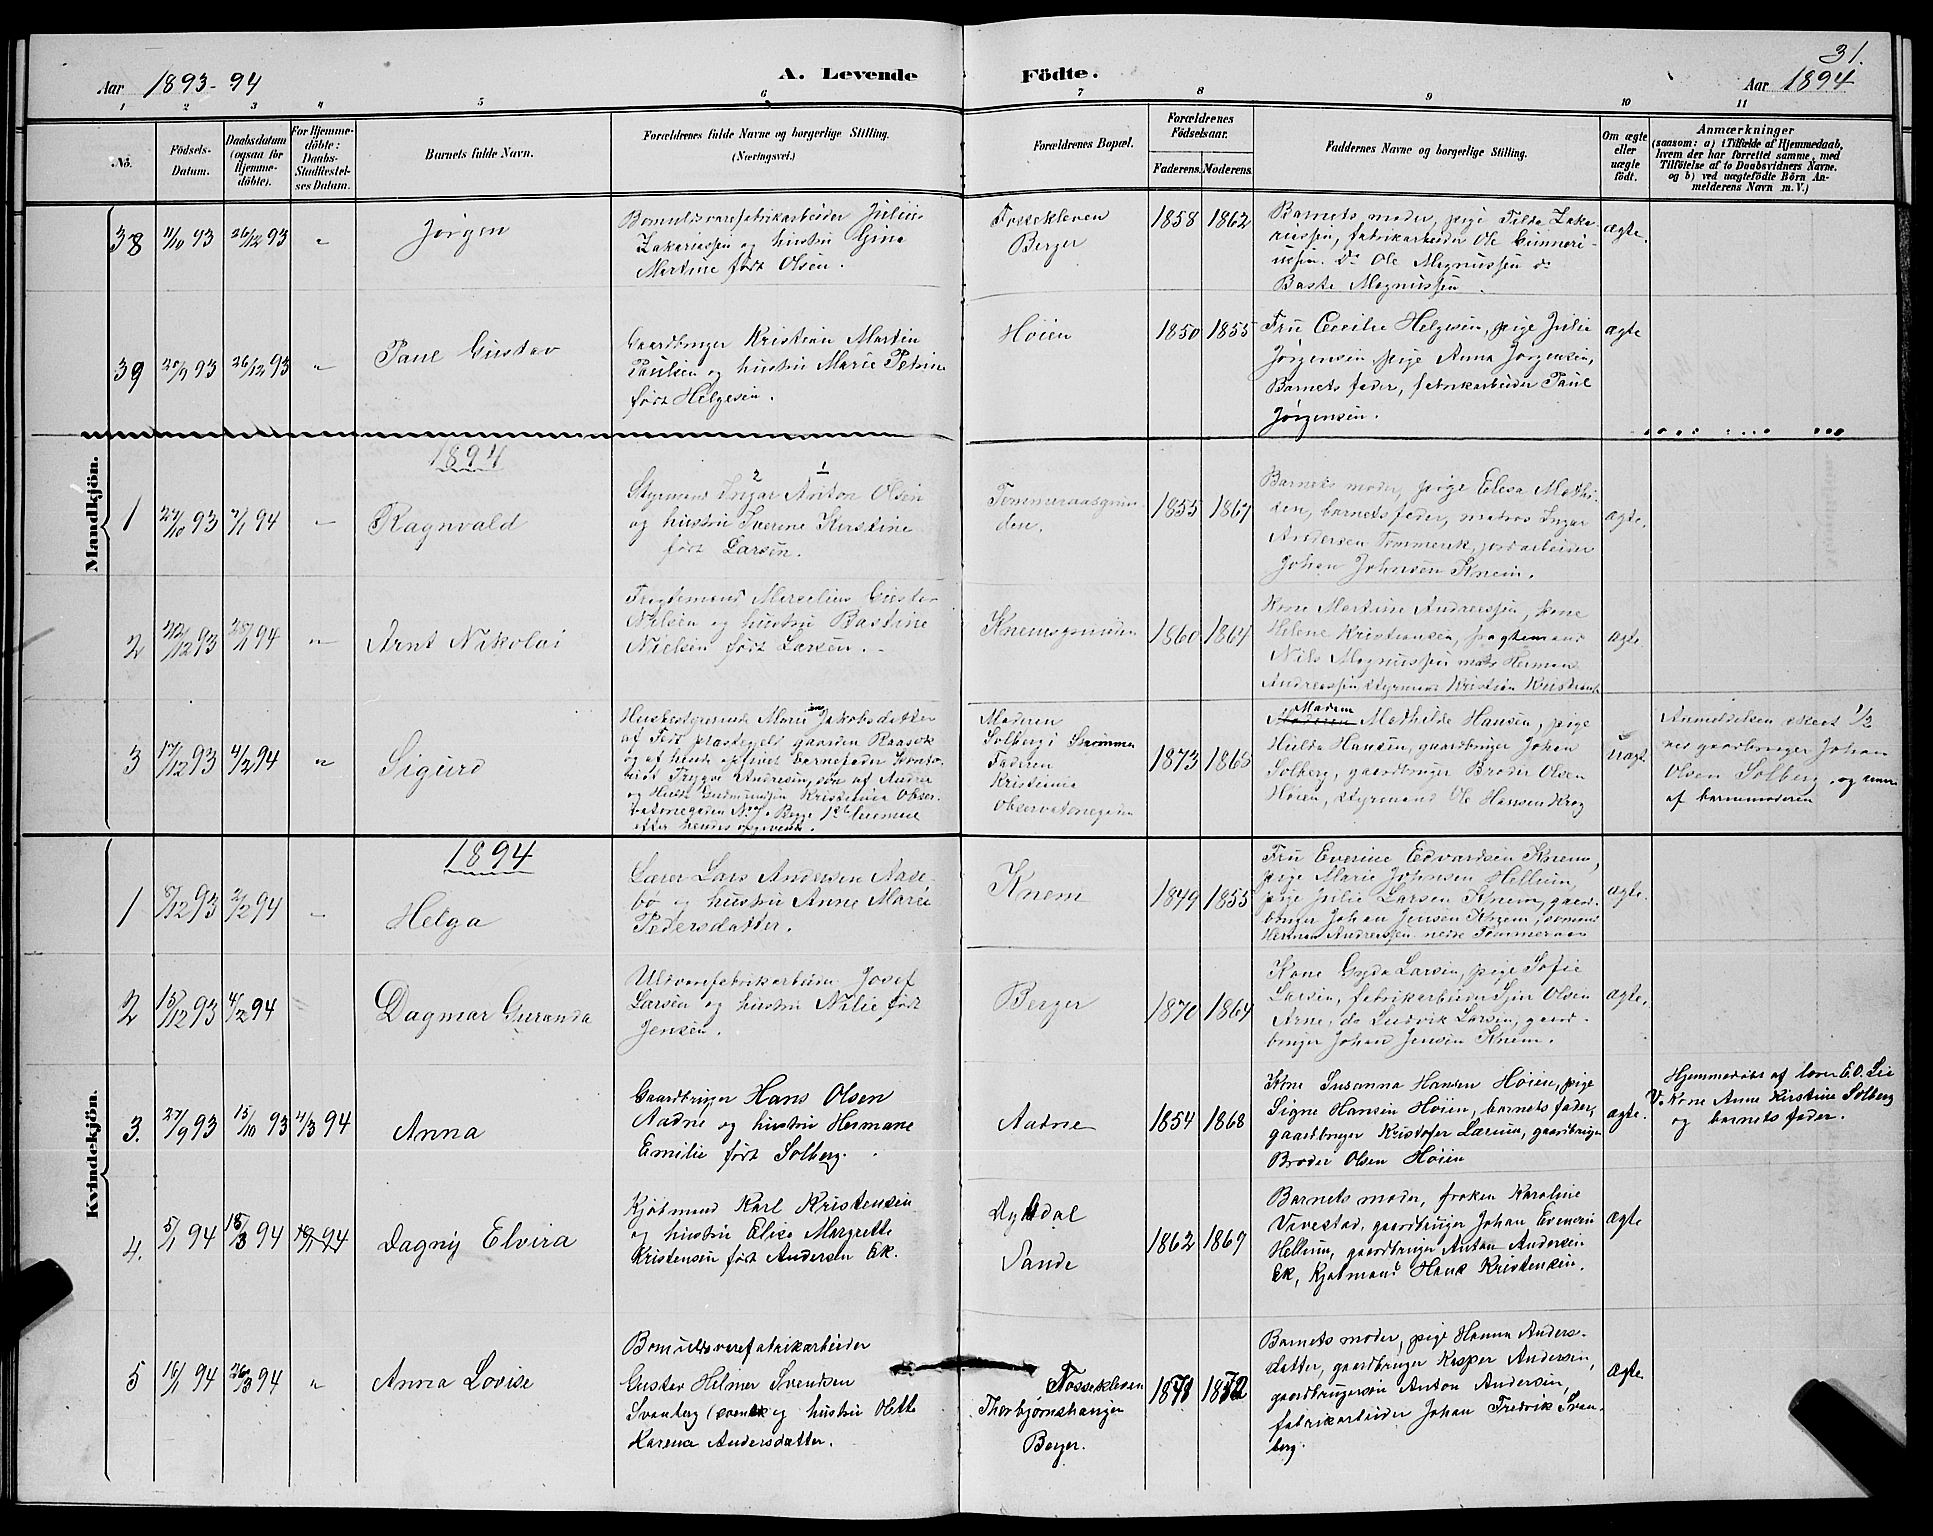 31.
Aar 1893-94
A. Levende
Födte.
Aar 1894
1 2 3 4 5 6 7 8 9 10 11
No.
Födsels-
Datum.
Daabsdatum
(ogsaa for
Hjemme-
döbte).
For Hjemme-
döbte:
Daabs-
Stadfæstel-
ses Datum.
Barnets fulde Navn.
Forældrenes fulde Navne og borgerlige Stilling.
(Næringsvei.)
Forældrenes Bopæl.
Forældrenes
Födselsaar.
Faderens. Moderens.
Faddernes Navne og borgerlige Stilling.
Om ægte
eller
uægte
födt.
Anmærkninger
(saasom: a) i Tilfælde af Hjemmedaab,
hvem der har forrettet samme, med
Tilföielse af to Daabsvidners Navne.
og b) ved uægtefödte Börn An-
melderens Navn m. V.)
Mandkjön.
38
11/10 93
26/12 93
"
Jörgen
Bomuldsvarefabrikarbeider Julius
Zakariassen og hustru Gina
Martine født Olsen.
Fossekleven
Berger
1858
1862
Barnets moder, pige Tilda Zaka
riassen, fabrikarbeider Ole Gunneri-
ussen. Do Ole Magnussen do
Baste Magnussen
ægte.
39
26/12 93
"
Paul Gustav
Gaardbruger Kristian Martin
Paulsen og hustru Marie Petrine
født Helgesen.
Höien
1850
1855
Fru Cecilie Helgesen, pige Julie
Jörgensen, pige Anna Jörgensen,
Barnets fader, fabrikarbeider Paul
Jörgensen.
ægte
1894
1
27/10 93
7/1 94
"
Ragnvald
2 1
Styrmand Ingar Anton Olsen
og hustru Severine Kirstine
født Larsen.
Tommeraasgrun
den.
1855
1867
Barnets moder, pige Elesa Mathi-
den, barnets fader, matros Ingar
Andersen Tommerek, jordarbeider
Johan Johnsen Knem.
ægte.
2
22/12 93
28/1 94
"
Arnt Nikolai
Fragtemand Marcelius Gustav
Nielsen og hustru Bastine
Nielsen født Larsen.
Knemsgrunden
1860
1864
Kone Martine Andreassen, kone
Helene Kristiansen, fragtemand
Nils Magnussen Herman
Andreassen styrmand Kristian Kristians
ægte.
3
17/12 93
4/2 94
"
Sigurd
Marie Jakobsdatter
af præstegjeld gaarden
og af hende opgivet barnefader Konto-
rist Trygve Andresen, søn af Andre
og Kristiania Obser-
vatoriegaden No 7. Begge 1ste leiermaal
efter hendes opgivende.
Moderen
Solberg i Strømmen
Faderen
Kristiania
Observatoriegaden
1873
1865
Madam
Moderen Mathilde Hansen, pige
Hulda Hansen, gaardbruger Johan
Solberg, gaardbruger Broder Olsen
Höien, styrmand Ole Hansen Krog
Uægt.
Anmeldelsen skeet 1/2
ved gaardbruger Johan
Olsen Solberg og
af barnemoderen
Kvindekjön.
1894
1
8/12 93
2/2 94
"
Helga
Lærer Lars Andersen Aase-
bø og hustru Anne Marie
Pedersdatter.
Knem
1849
1855
Fru Everine Edvardsen Knem,
pige Marie Johnsen Hellum,
pige Julie Larsen Knem, gaard-
bruger Johan Jensen Knem, sømand
Herman Andreassen nedre Tommeraas
ægte.
2
15/12 93
4/2 94
Dagmar Guranda
Uldvarefabrikarbeider Josef
Larsen og hustru Nilie født
Jensen.
Berger
1870
1864
Kone Gyda Larsen, pige Sofie
Larsen, fabrikarbeider Olsen
Arne, do Ludvik Larsen, gaard-
bruger Johan Jensen Knem.
ægte.
3.
27/9 93
15/10 93
4/3 94
Anna
Gaardbruger Hans Olsen
Aadne og hustru Hermane
Emilie født Solberg.
Aadne
1854
1868
Kone Susanna Hansen Höien, pige
Signe Hansen Höien, barnets fader,
gaardbruger Kristofer Larsen, gaardbruger
Broder Olsen Höien
ægte.
Hjemmedøbt af lærer E. O. Lie
V. Kone Anne Kirstine Solberg
og barnets fader.
4.
5/1 94
18/3 94
Dagny Elvira
Kjøbmand Karl Kristensen
og hustru Elise Margrethe
Kristensen født Andersen Ek.
Sande
1862
1869
Barnets moder, frøken Karoline
Vivestad, gaardbruger Johan Evensen
Hellum, gaardbruger Anton Andersen
Ek, Kjøbmand Hans Kristensen.
ægte
5
16/1 94
26/3 94
"
Anna Lovise
Bomuldsvarefabrikarbeider
Gustav Helmer Svendsen
Svanberg (svensk og hustru Olette
Karense Andersdatter.
Fossekleven
Thorbjørnshaugen
Berger.
1871
1872
Barnets moder, pige Hanna Anders-
datter, gaardbruger Kasper Andersen,
gaardbrugersøn Anton Andersen,
fabrikarbeider Johan Fredrik Svan-
berg.
ægte